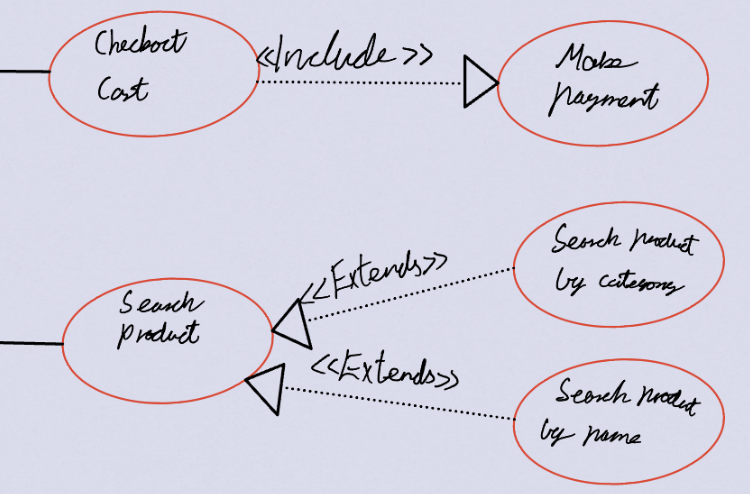 Checkout
Cost
<<Include>>
Make
payment
Search
product
<<Extends>>
Search product
by category
<<Extends>>
Search product
by name